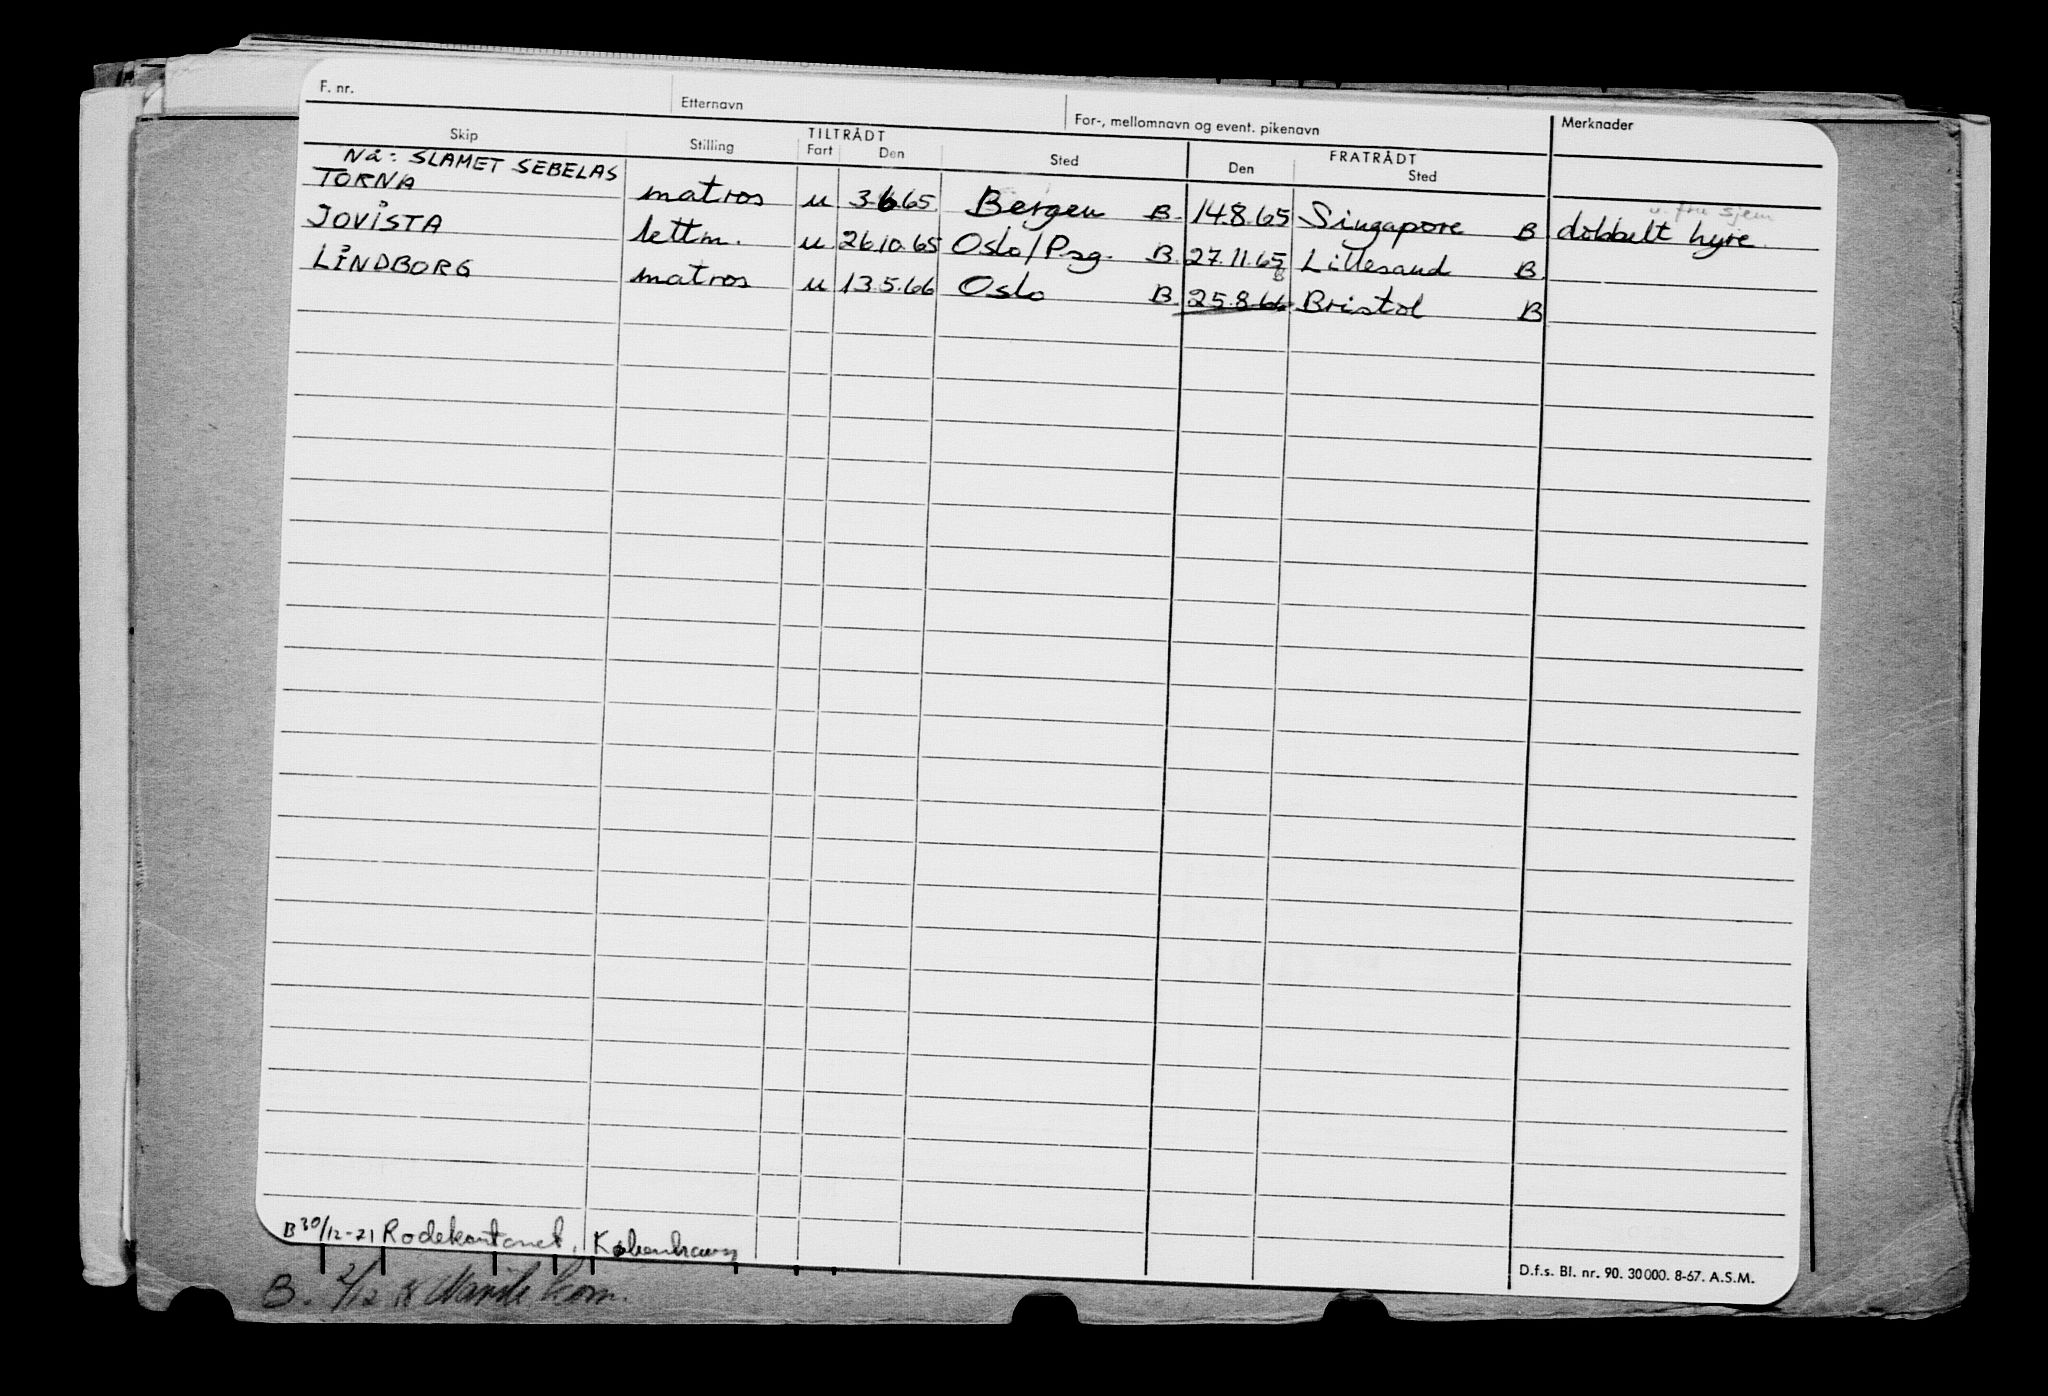 F. nr. Etternavn For-, mellomnavn og event. pikenavn Merknader
TILTRÅDT FRATRÅDT
Skip Stilling Fart Den Sted Den Sted
Nå: SLAMET SEBELAS
TORNA matros u 3.6.65. Bergen B. 14.8.65 Singapore B dobbelt hyre.
JOVISTA lettm. u 26.10.65 Oslo/Psg. B. 27.11.65 Lillesand B.
LINDBORG matros u 13.5.66 Oslo B. 25.8.66 Bristol B
B 30/12-21 Rodekontoret, København
D.f.s. Bl. nr. 90. 30000. 8-67. A.S.M.
B. 2/12